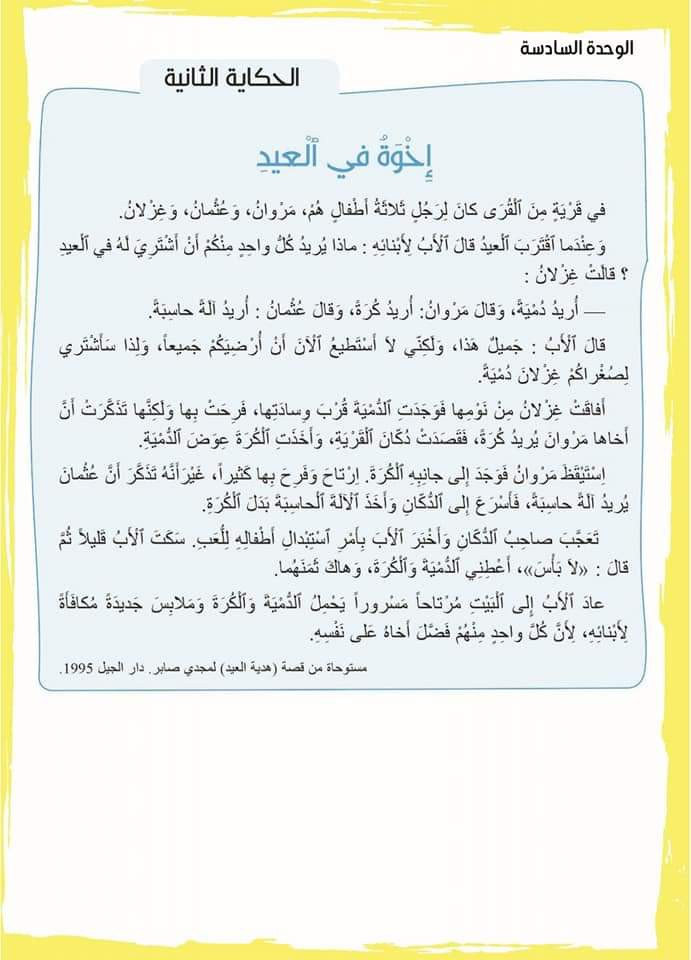 الوحدة السادسة
الحكاية الثانية
إِخْوَةٌ في ٱلْعيدِ
في قَرْيَةٍ مِنَ ٱلْقُرَى كانَ لِرَجُلٍ ثَلاثَةُ أَطْفالٍ هُمْ، مَرْوانُ، وَعُثْمانُ، وَغِزْلانُ.
وَعِنْدَما ٱقْتَرَبَ ٱلْعيدُ قالَ ٱلْأَبُ لِأَبْنائِهِ : ماذا يُريدُ كُلُّ واحِدٍ مِنْكُمْ أَنْ أَشْتَرِيَ لَهُ في ٱلْعيدِ
؟ قالَتْ غِزْلانُ :
— أُريدُ دُمْيَةً، وَقالَ مَرْوانُ: أُريدُ كُرَةً، وَقالَ عُثْمانُ : أُريدُ آلَةً حاسِبَةً.
قالَ ٱلْأَبُ : جَميلٌ هَذا، وَلَكِنّي لاَ أَسْتَطيعُ ٱلْآنَ أَنْ أُرْضِيَكُمْ جَميعاً، وَلِذا سَأَشْتَري
لِصُغْراكُمْ غِزْلانَ دُمْيَةً.
أَفاقَتْ غِزْلانُ مِنْ نَوْمِها فَوَجَدَتِ ٱلدُّمْيَةَ قُرْبَ وِسادَتِها، فَرِحَتْ بِها وَلَكِنَّها تَذَكَّرَتْ أَنَّ
أَخاها مَرْوانَ يُريدُ كُرَةً، فَقَصَدَتْ دُكّانَ ٱلْقَرْيَةِ، وَأَخَذَتِ ٱلْكُرَةَ عِوَضَ ٱلدُّمْيَةِ.
اِسْتَيْقَظَ مَرْوانُ فَوَجَدَ إِلى جانِبِهِ ٱلْكُرَةَ. اِرْتاحَ وَفَرِحَ بِها كَثيراً، غَيْرَ أَنَّهُ تَذَكَّرَ أَنَّ عُثْمانَ
يُريدُ آلَةً حاسِبَةً، فَأَسْرَعَ إِلى ٱلدُّكّانِ وَأَخَذَ ٱلْآلَةَ ٱلْحاسِبَةَ بَدَلَ ٱلْكُرَةِ.
تَعَجَّبَ صاحِبُ ٱلدُّكّانِ وَأَخْبَرَ ٱلْأَبَ بِأَمْرِ ٱسْتِبْدالِ أَطْفالِهِ لِلُّعَبِ. سَكَتَ ٱلْأَبُ قَليلاً ثُمَّ
قالَ : «لاَ بَأْسَ»، أَعْطِنِي ٱلدُّمْيَةَ وَٱلْكُرَةَ، وَهاكَ ثَمَنَهُما.
عادَ ٱلْأَبُ إِلى ٱلْبَيْتِ مُرْتاحاً مَسْروراً يَحْمِلُ ٱلدُّمْيَةَ وَٱلْكُرَةَ وَمَلابِسَ جَديدَةً مُكافَأَةً
لِأَبْنائِهِ، لِأَنَّ كُلَّ واحِدٍ مِنْهُمْ فَضَّلَ أَخاهُ عَلى نَفْسِهِ.
مستوحاة من قصة (هدية العيد) لمجدي صابر. دار الجيل 1995.